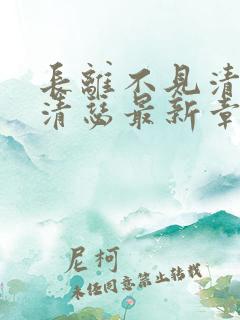 長離不見清
清瑟最新章
尼柯
未经同意禁止转载